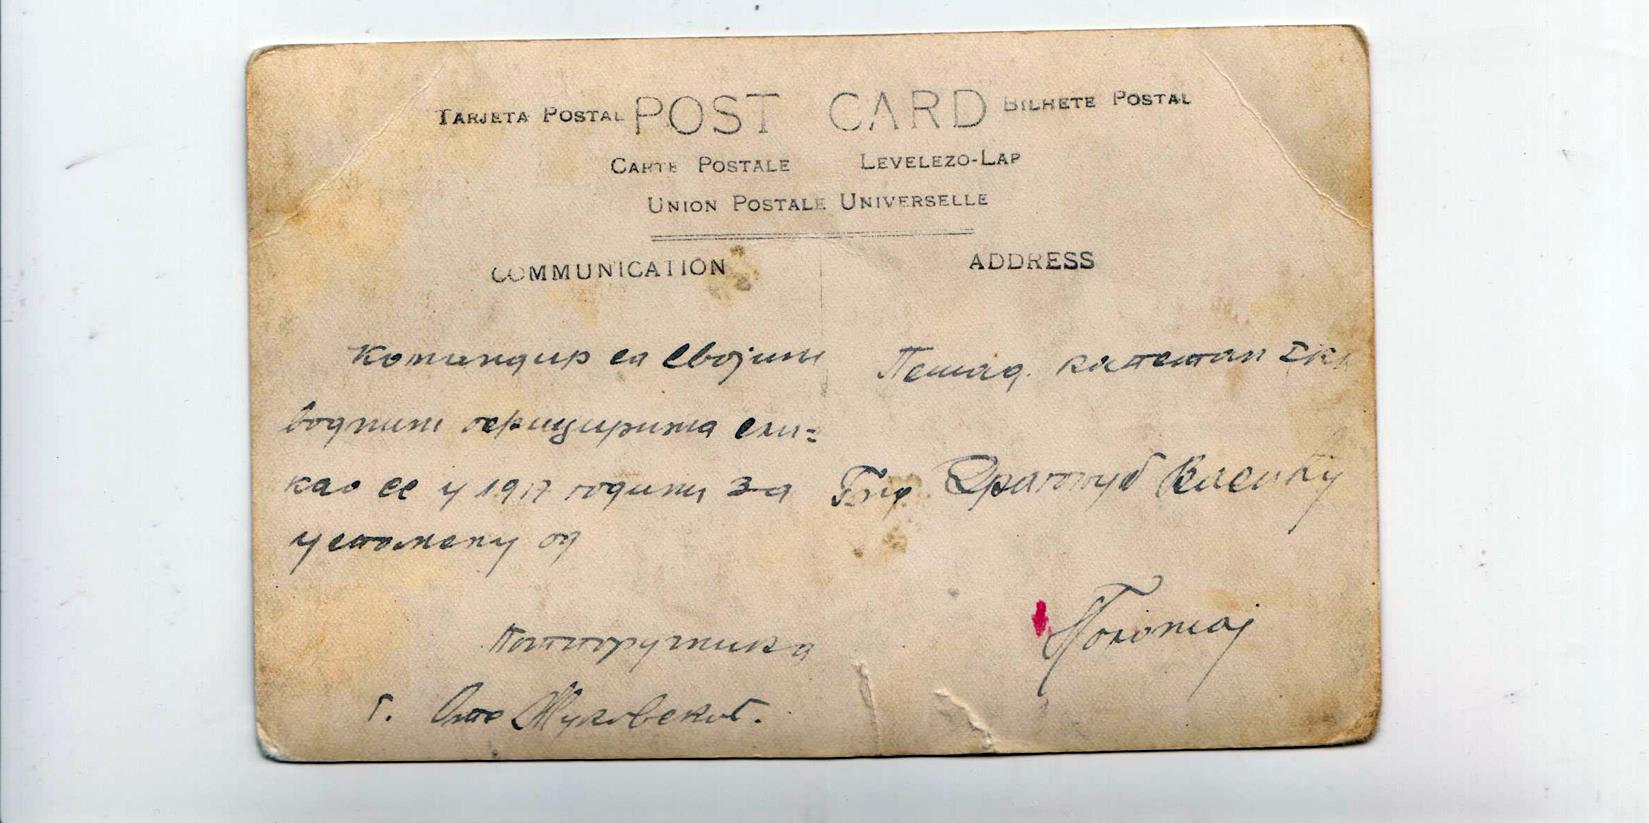 TARJETA POSTAL POST CARD BILHETE POSTAL
CARTE POSTALE LEVELEZO-LAP
UNION POSTALE UNIVERSELLE
COMMUNICATION
ADDRESS
Командир са својим
водним официрима сли-
као се у 1917 години за
успомену од
Потпоручника
г. Жуковског.
Пешад. капетан
Драгољуб Васићу